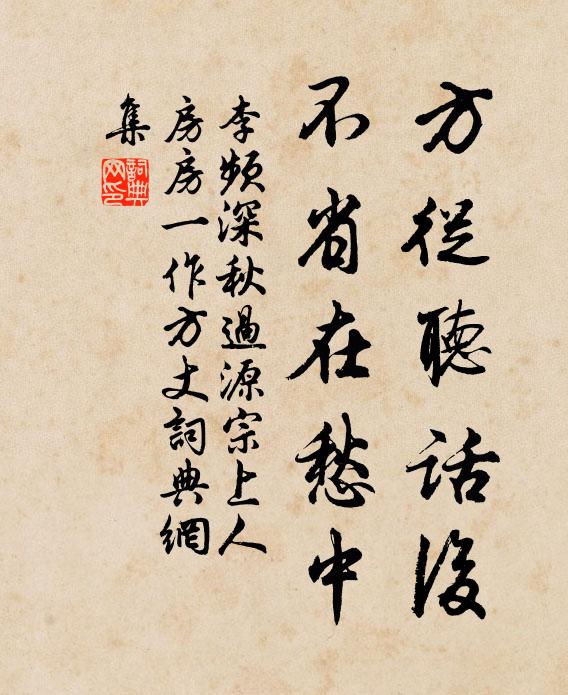 方從聽話後
不省在愁中
李頻深秋過源宗上人
房房一作方丈詞典網
集
詞典网印